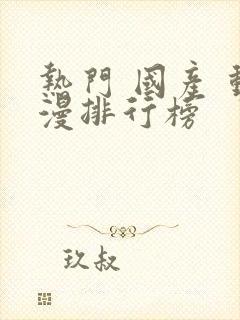 熱門 國產 動
漫排行榜
玖叔